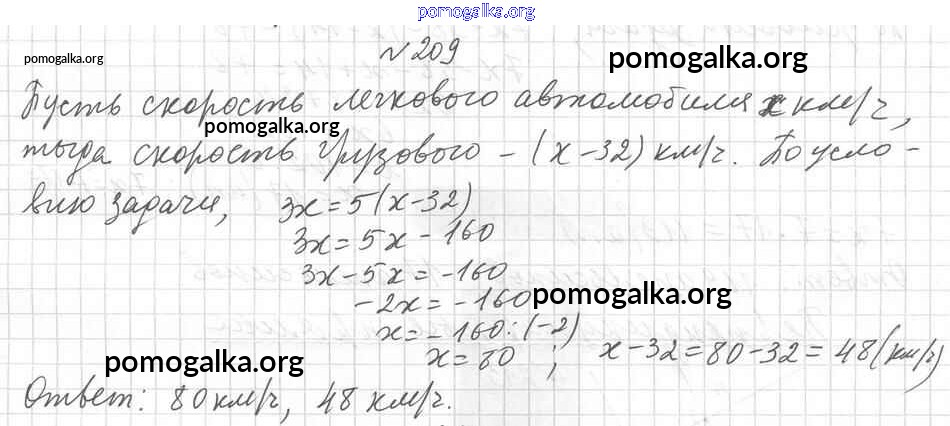 pomogalka.org
№ 209
pomogalka.org
pomogalka.org
Пусть скорость легкового автомобиля x км/ч,
pomogalka.org
тогда скорость грузового – (x-32) км/ч. По усло-
вию задачи, 3x=5(x-32)
3x=5x-160
3x-5x=-160
-2x=-160
pomogalka.org
x=-160:(-2)
x=80 ; x-32=80-32=48(км/ч)
pomogalka.org
Ответ: 80 км/ч, 48 км/ч.